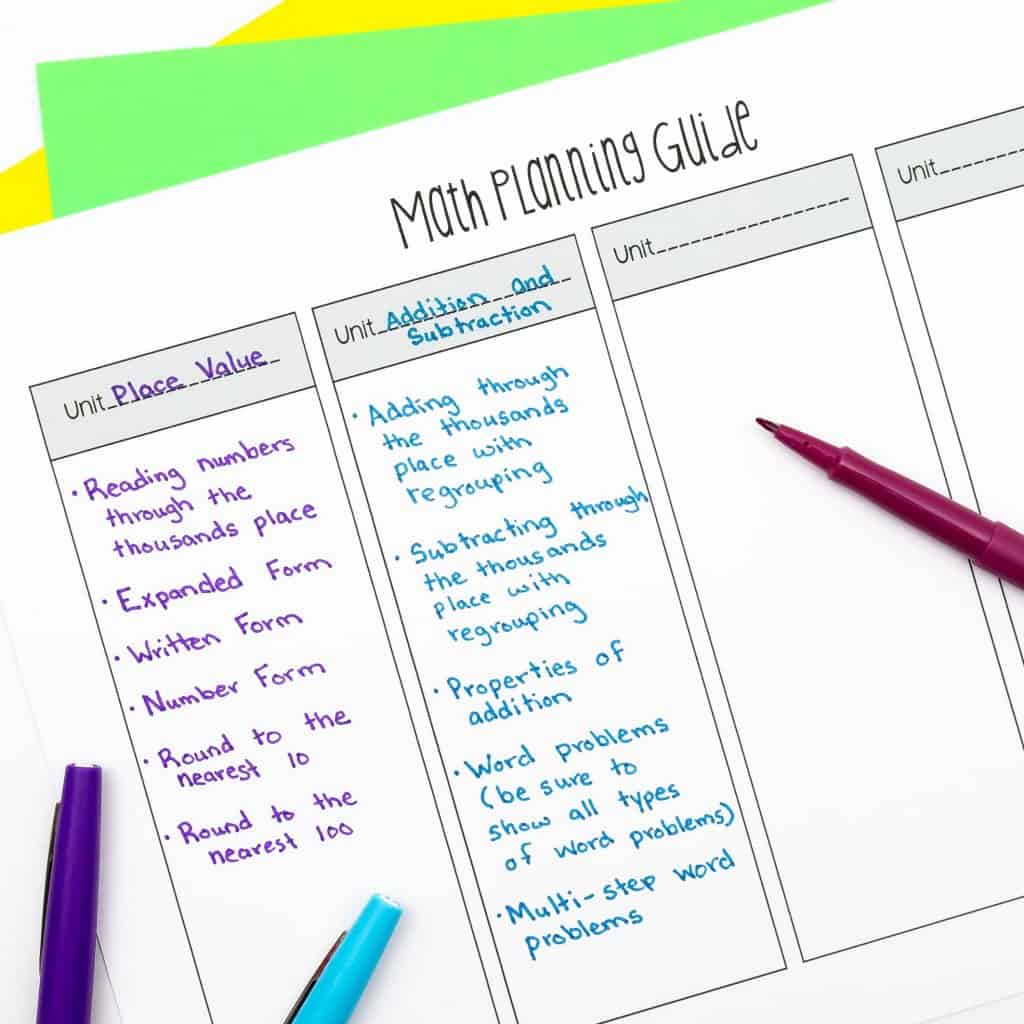 Math Planning Guide
Unit Place Value
• Reading numbers
through the
thousands place
• Expanded Form
• Written Form
• Number Form
• Round to the
nearest 10
• Round to the
nearest 100
Unit Addition and
Subtraction
• Adding through
the thousands
place with
regrouping
• Subtracting through
the thousands
place with
regrouping
• Properties of
addition
• Word problems
(be sure to
show all types
of word problems)
• Multi-step word
problems
Unit
Unit